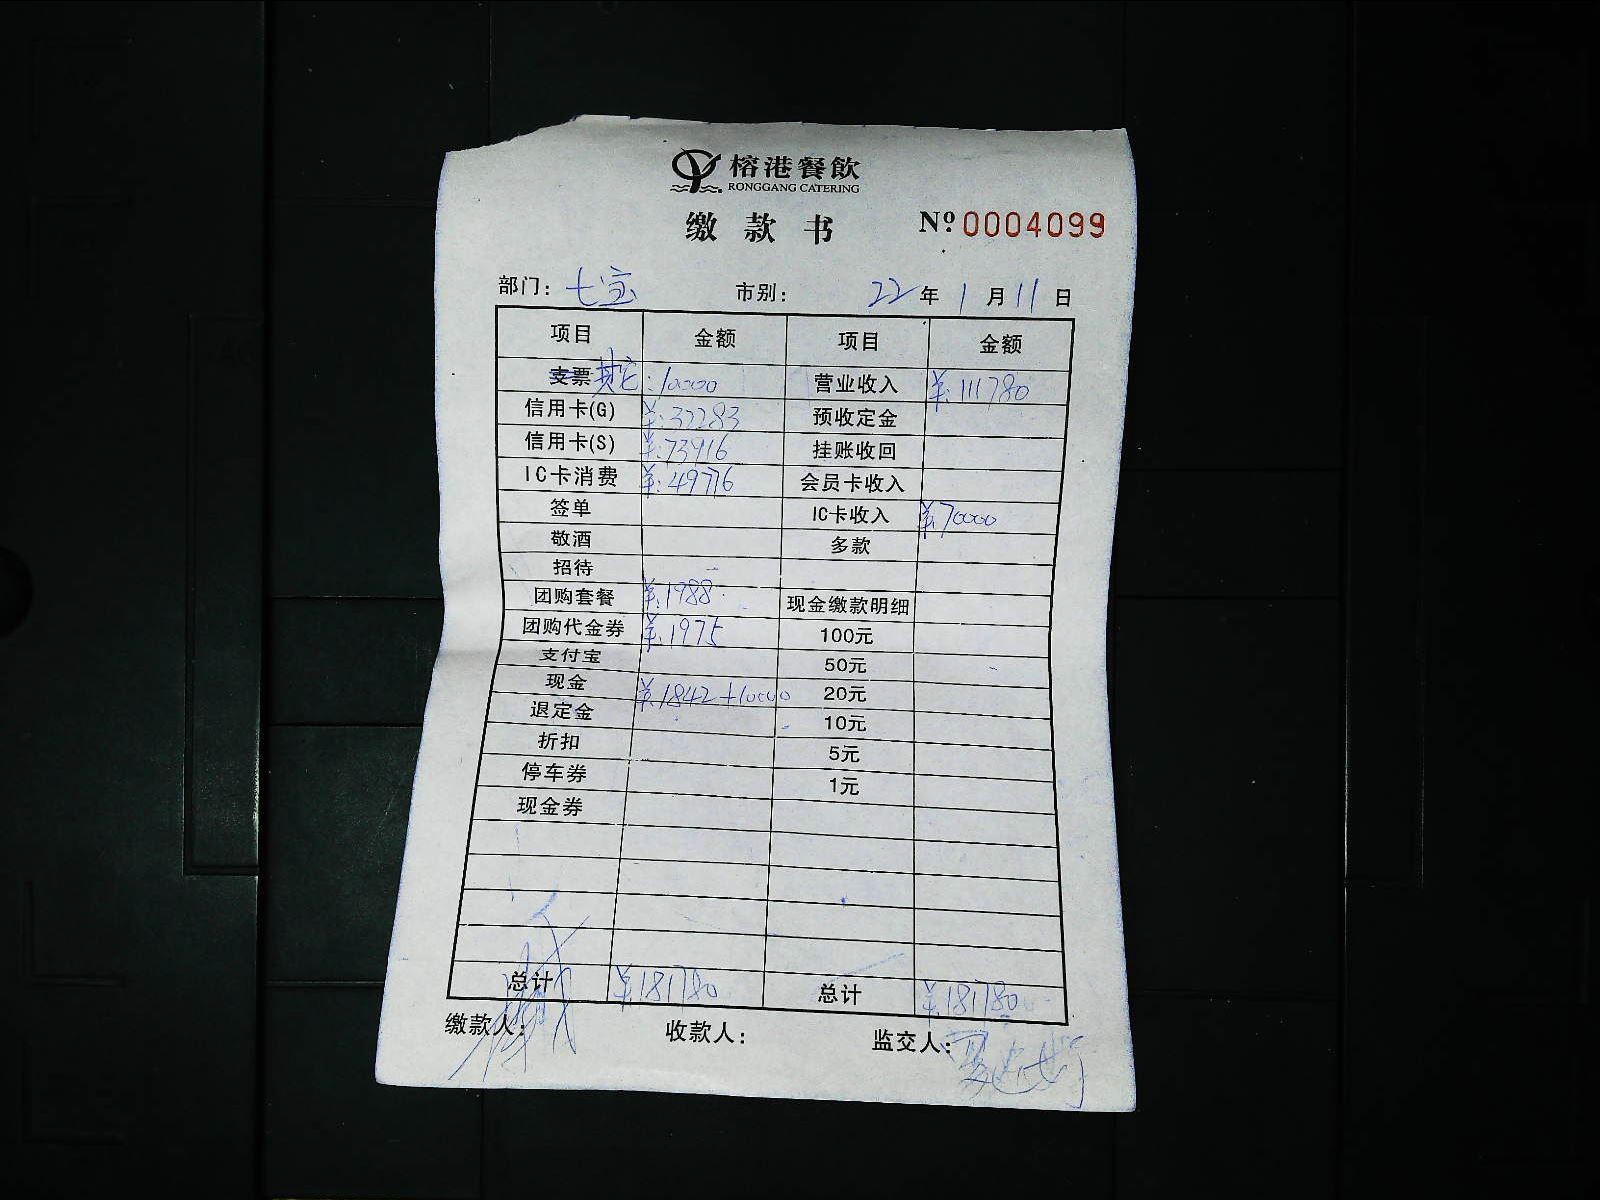 榕港餐飲
RONGGANG CATERING
缴款书 №0004099
部门: 七宝 市别: 22年1月11日
项目 金额 项目 金额
支票 其它:10000 营业收入 ¥:111780
信用卡(G) ¥:32283 预收定金
信用卡(S) ¥:73916 挂账收回
IC卡消费 ¥:49776 会员卡收入
签单 IC卡收入 ¥:70000
敬酒 多款
招待
团购套餐 ¥:1988 现金缴款明细
团购代金券 ¥:1975 100元
支付宝 50元
现金 ¥:1842+10000 20元
退定金 10元
折扣 5元
停车券 1元
现金券
总计 ¥:181780 总计 ¥:181780
缴款人: 收款人: 监交人: